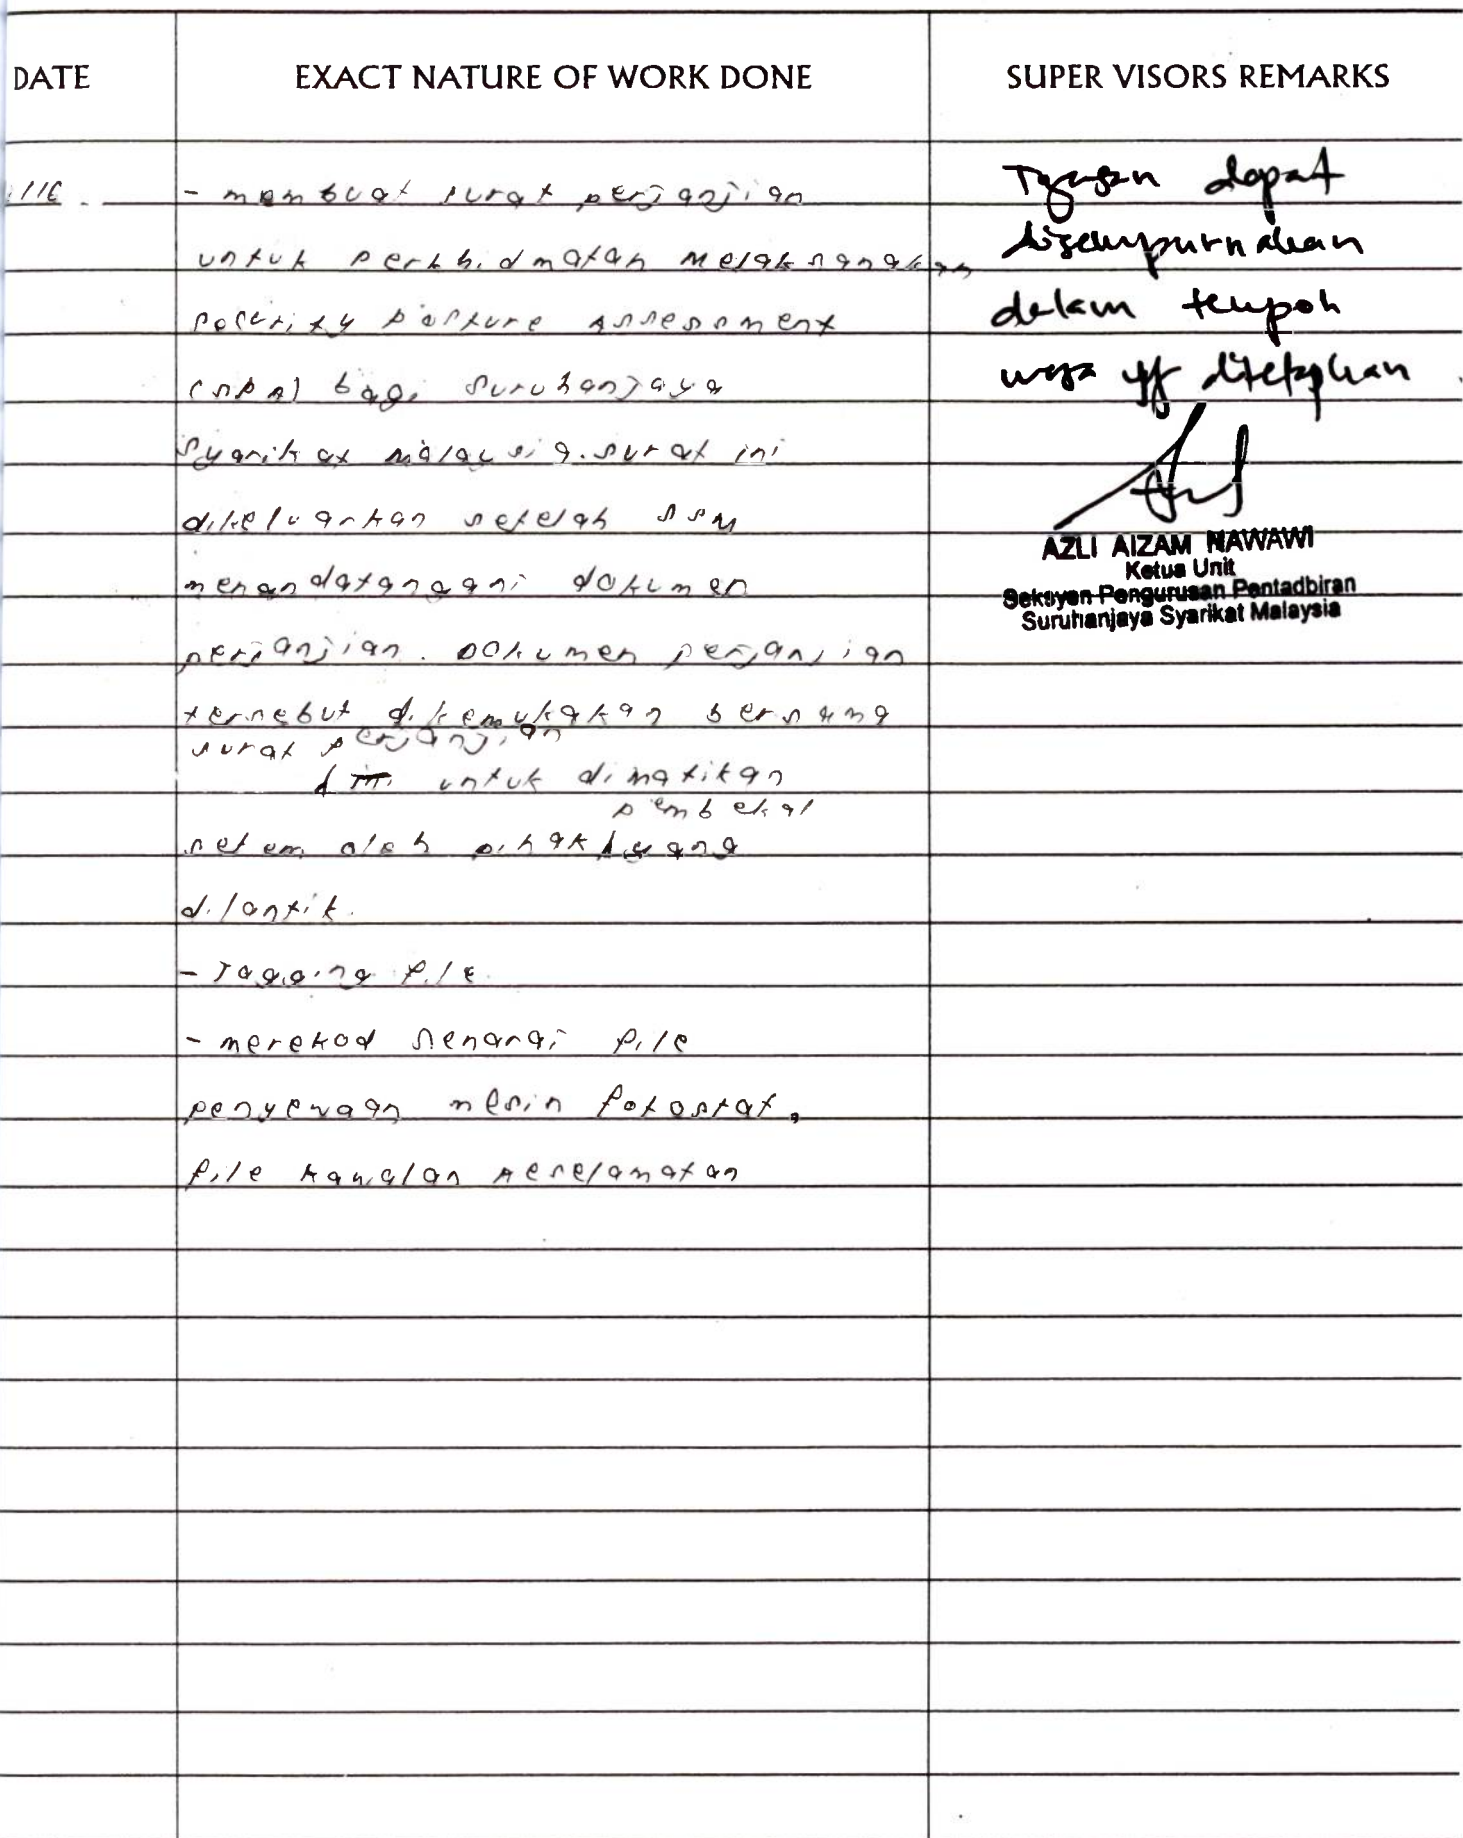 DATE
EXACT NATURE OF WORK DONE
SUPER VISORS REMARKS
116
- membuat surat perjanjian
untuk perkhidmatan melaksanakan
security posture assessment
(SPA) bagi suruhanjaya
syarikat malaysia. surat ini
dikeluarkan setelah SSM
menandatangani dokumen
perjanjian. Dokumen perjanjian
tersebut dikemukakan bersama
surat perjanjian
untuk dimatikan
pembekal
setem oleh pihak yang
dilantik.
- Tagging file
- merekod senarai file
penyewaan mesin fotostat,
file kawalan keselamatan
Tugasan dapat
disempurnakan
dalam tempoh
masa yg ditetapkan
AZLI AIZAM NAWAWI
Ketua Unit
Seksyen Pengurusan Pentadbiran
Suruhanjaya Syarikat Malaysia